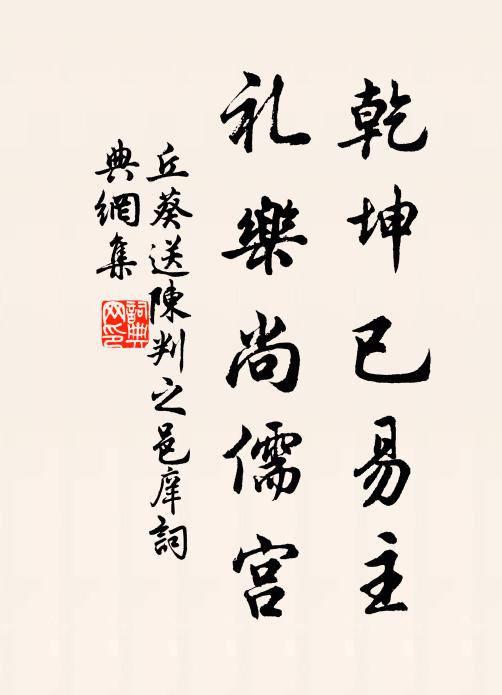 乾坤已易主
礼樂尚儒宫
丘葵送陳判之邑庠詞
典網集
詞典網印